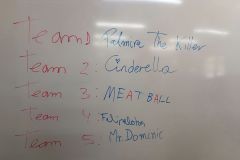 Team 1 Palmira The Killer
Team 2: Cinderella
Team 3: MEATBALL
Team 4:
Team 5: Mr. Dominic